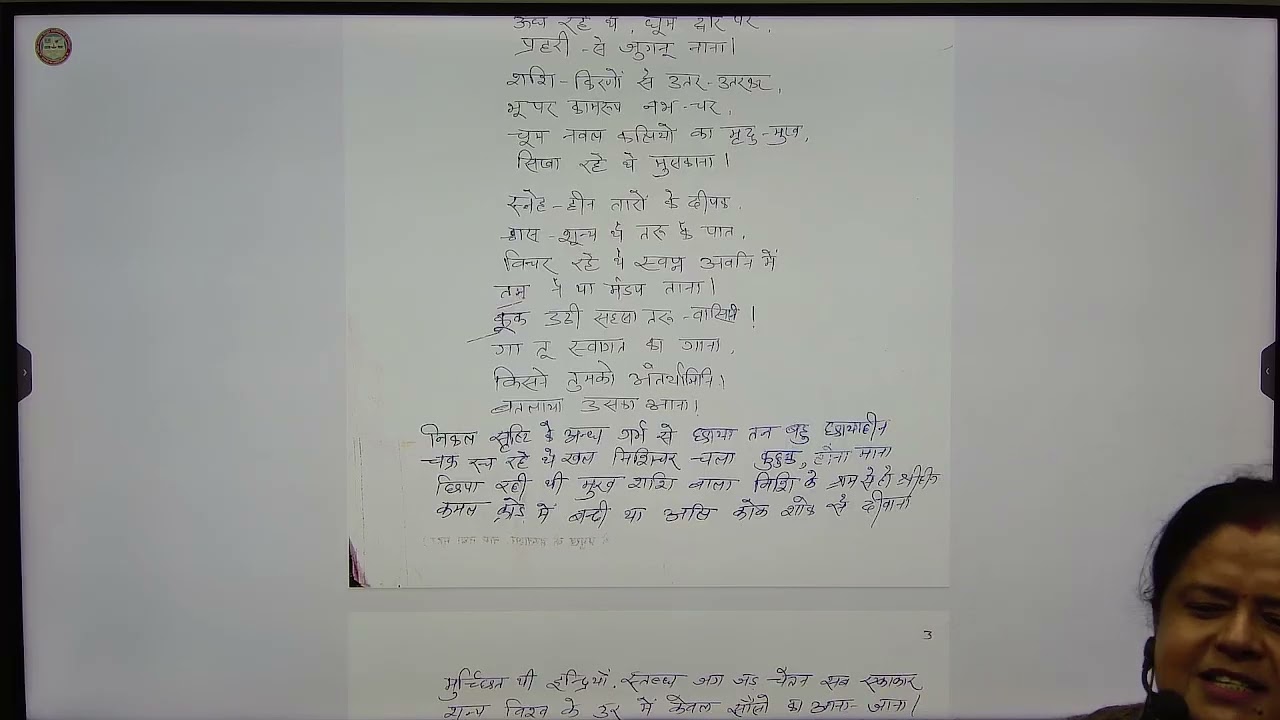 ऊंघ रहे थे, घूम द्वार पर,
प्रहरी-से जुगनू नाना।
शशि-किरणों से उतर-उतरकर,
भू पर कामरूप नभ-चर,
चूम नवल कलियों का मृदु-मुख,
सिखा रहे थे मुसकाना।
स्नेह-हीन तारों के दीपक,
श्वास-शून्य थे तरू के पात,
विचर रहे थे स्वप्न अवनि में
तम ने था मंडप ताना।
कूक उठी सहसा तरू-वासिनी!
गा तू स्वागत का गाना,
किसने तुमको अंतर्यामिनि!
बतलाया उसका आना।
निकल सृष्टि के अन्ध गर्भ से छाया तन बहु छायाहीन
चक्र रच रहे थे खल निशिचर चला कुहुक, टोना माना
छिपा रही थी मुख शशि बाला निशि के श्रम से हो श्रीहीन
कमल क्रोड़ में बन्दी था अलि कोक शोक से दीवाना
3
मुर्च्छित थी इन्द्रियाँ, स्तब्ध जग जड चेतन सब एकाकार
शून्य विश्व के उर में केवल साँसों का आना-जाना।